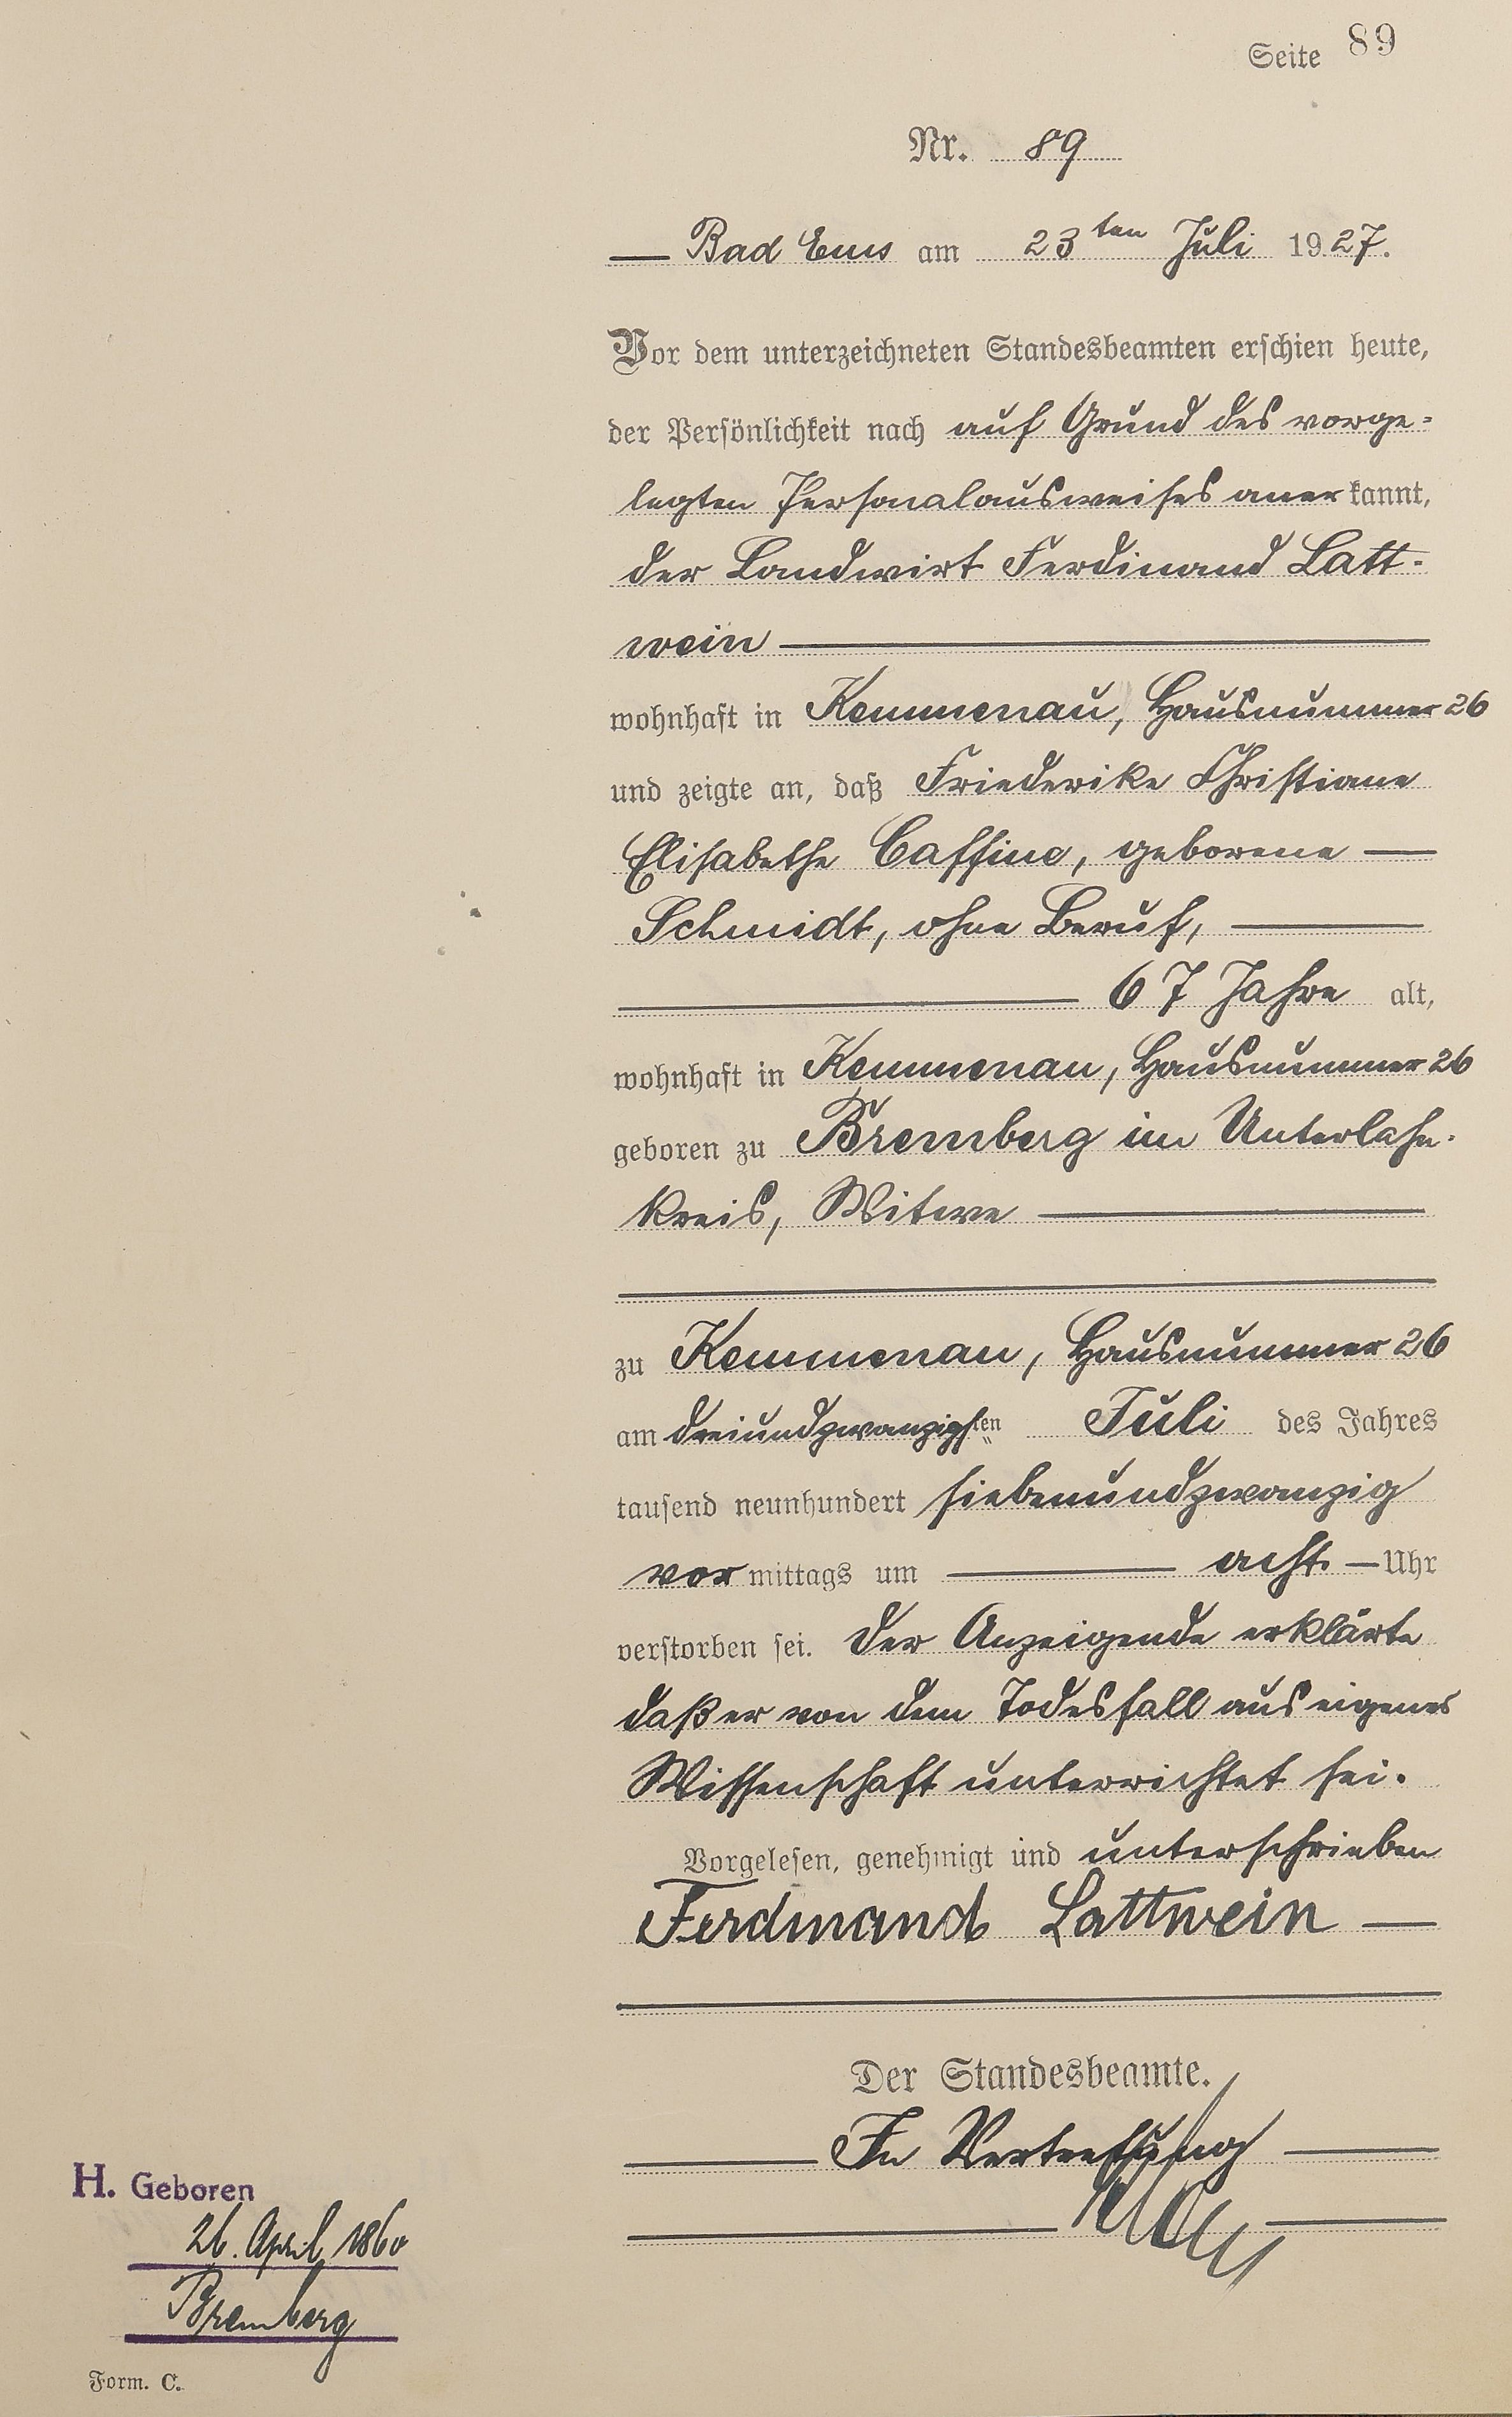 Seite 89
Nr. 89
Bad Ems am 23ten Juli 1927.
Vor dem unterzeichneten Standesbeamten erschien heute,
der Persönlichkeit nach auf Grund des vorge-
legten Personalausweises anerkannt,
der Landwirt Ferdinand Latt-
wein
wohnhaft in Kemmenau, Hausnummer 26
und zeigte an, daß Friederike Christiane
Elisabethe Caffine, geborene
Schmidt, ohne Beruf,
67 Jahre alt,
wohnhaft in Kemmenau, Hausnummer 26
geboren zu Bremberg im Unterlahn-
kreis, Witwe
zu Kemmenau, Hausnummer 26
am dreiundzwanzigsten Juli des Jahres
tausend neunhundert siebenundzwanzig
vormittags um acht Uhr
verstorben sei. Der Anzeigende erklärte
daß er von dem Todesfall aus eigener
Wissenschaft unterrichtet sei.
Vorgelesen, genehmigt und unterschrieben
Ferdinand Lattwein
Der Standesbeamte.
In Vertretung
H. Geboren
26. April 1860
Bremberg
Form. C.